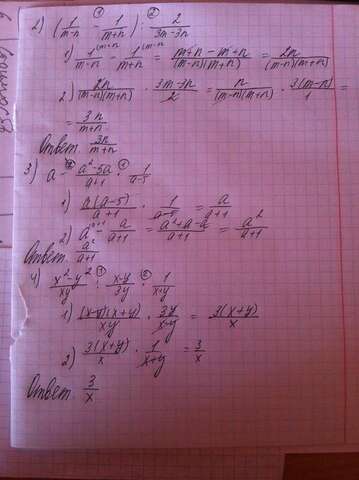 2) (1/(m-n) ① - 1/(m+n)) : ② 2/(3m-3n)
1) 1^(m+n/(m-n) - 1^(m-n/(m+n) = (m+n-m+n)/((m-n)(m+n)) = 2n/((m-n)(m+n))
2) 2n/((m-n)(m+n)) · (3m-3n)/2 = n/((m-n)(m+n)) · 3(m-n)/1 =
= 3n/(m+n)
Ответ. 3n/(m+n)
3) a - ② (a²-5a)/(a+1) · ① 1/(a-5)
1) a(a-5)/(a+1) · 1/(a-5) = a/(a+1)
2) a^(a+1 - a/(a+1) = (a²+a-a)/(a+1) = a²/(a+1)
Ответ. a²/(a+1)
4) (x²-y²)/(xy) : ① (x-y)/(3y) · ② 1/(x+y)
1) (x-y)(x+y)/(xy) · 3y/(x-y) = 3(x+y)/x
2) 3(x+y)/x · 1/(x+y) = 3/x
Ответ. 3/x